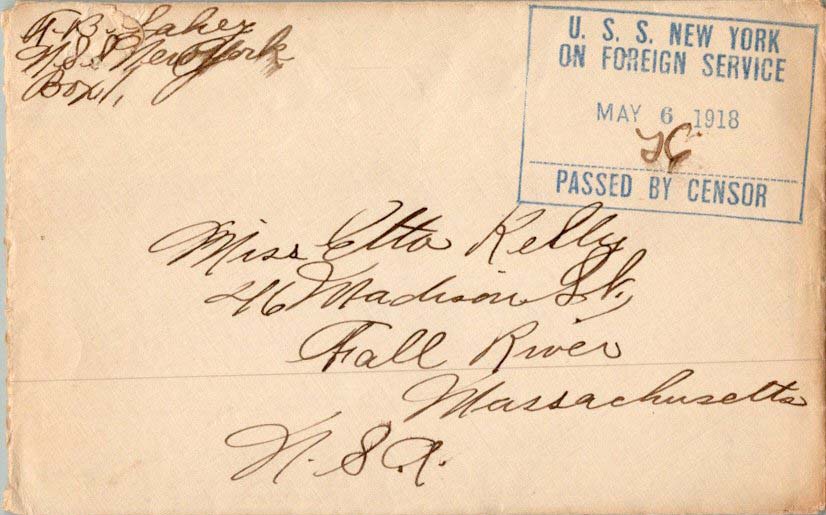 A. B. Laher
U.S.S. New York
Box 1,
U. S. S. NEW YORK
ON FOREIGN SERVICE
MAY 6 1918
PASSED BY CENSOR
Miss Etta Kelly
46 Madison St.,
Fall River
Massachusetts
U. S. A.